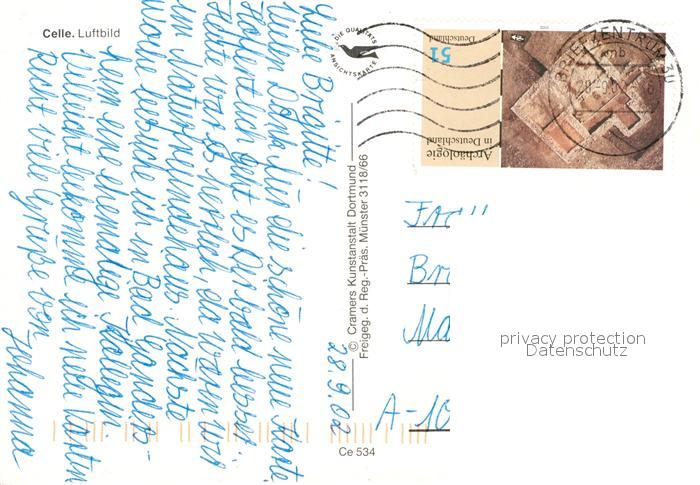 Celle. Luftbild
Liebe Brigitte!
Vielen Dank für die schöne neue Karte
Hoffentlich geht es Dir bald besser
Heute war es herrlich, da waren wir
im Naturfreundehaus. Nächste
Woche besuche ich in Bad Ganders-
heim eine ehemalige Kollegin.
Vielleicht bekomme ich neue Karten
Recht viele Grüße von
Johanna
28.9.02
© Cramers Kunstanstalt Dortmund
Freigeg. d. Reg.-Präs. Münster 3118/66
Ce 534
DIE QUALITÄTS
ANSICHTSKARTE
Deutschland
51
Archäologie
in Deutschland
BRIEFZENTRUM 30
mb
Br
Ma
A-10
privacy protection
Datenschutz